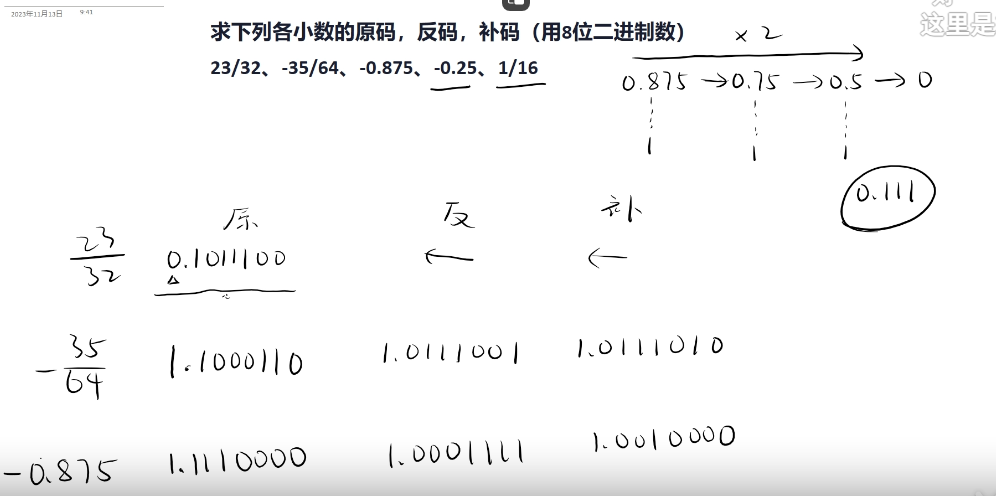 2023年11月13日 9:41
这里是
求下列各小数的原码，反码，补码（用8位二进制数）
23/32、-35/64、-0.875、-0.25、1/16
×2
0.875 → 0.75 → 0.5 → 0
1 1 1
0.111
原 反 补
23/32 0.1011100 ← ←
-35/64 1.1000110 1.0111001 1.0111010
-0.875 1.1110000 1.0001111 1.0010000